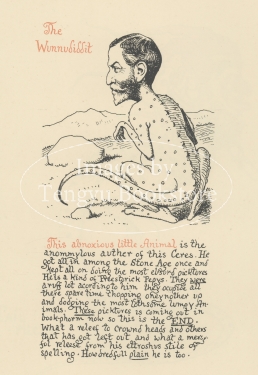 The
Wunnubibbit
This abnoxious little Animal is the
anommylous auther of this Ceres. He
got all in among the Stone Age once and
kept all on doing the most elsord picktures
He is a kind of Freestorick Pepys. They were
a ruff lot acording to him they ocupide all
there spare time chopping oneynother up
and dodging the most lothsome lumgy Ani-
mals. These picktures is coming out in
book-phorm now so this is the END.
What a releef to crownd heads and others
that has got left out and what a mercy-
ful release from his ettroshus stile of
spelling. How dredfull plain he is too.
Image by
Tenguu Bookstore